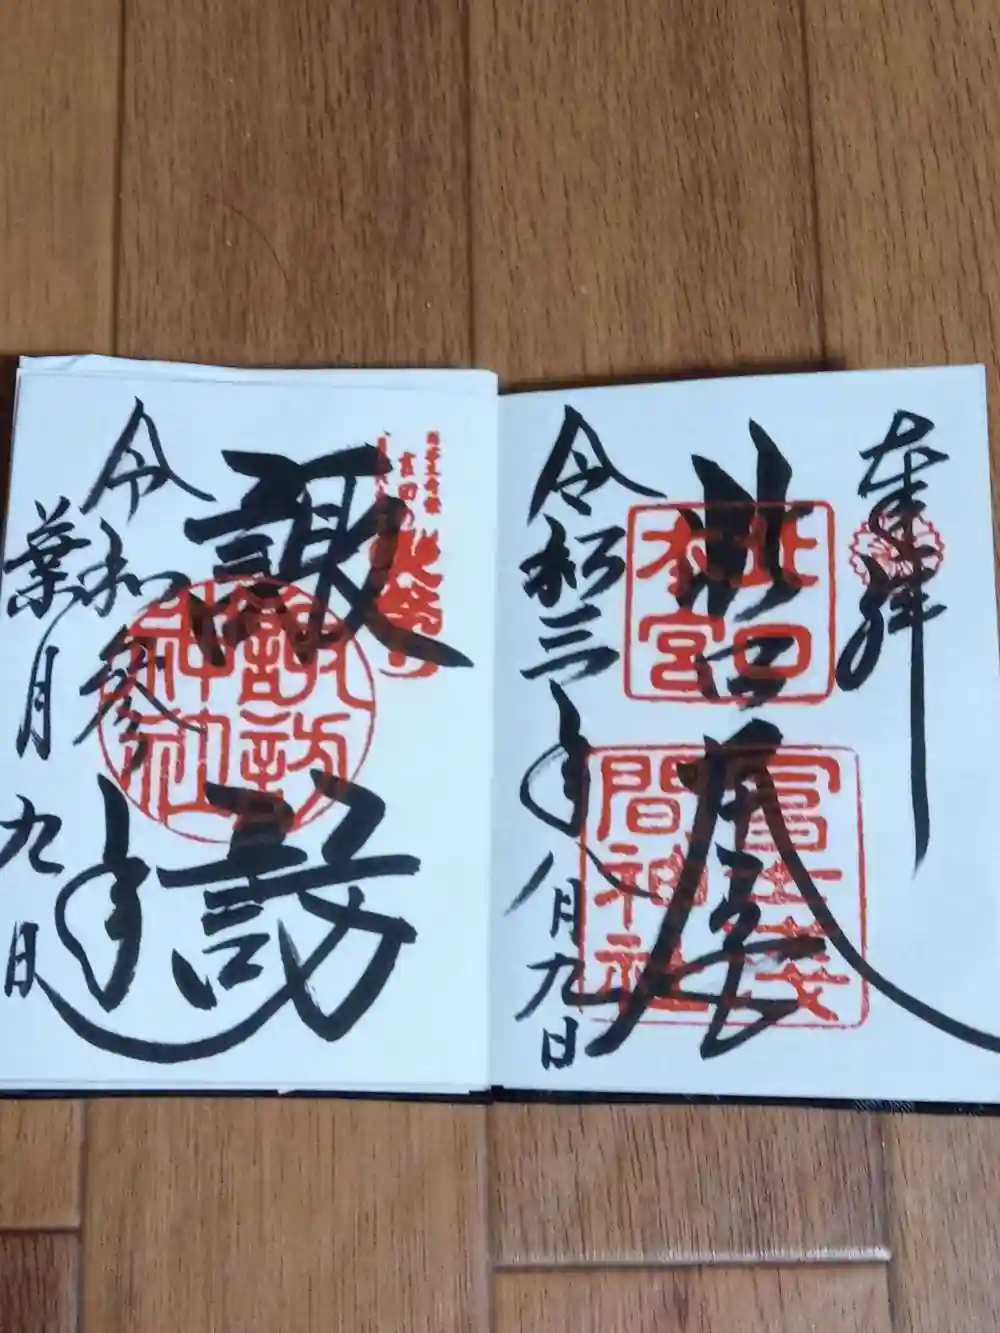 奉拝
北口
本宮
冨士浅
間神社
令和三年八月九日
吉田の
火祭り
諏訪
諏訪
神社
令和参年
葉月九日